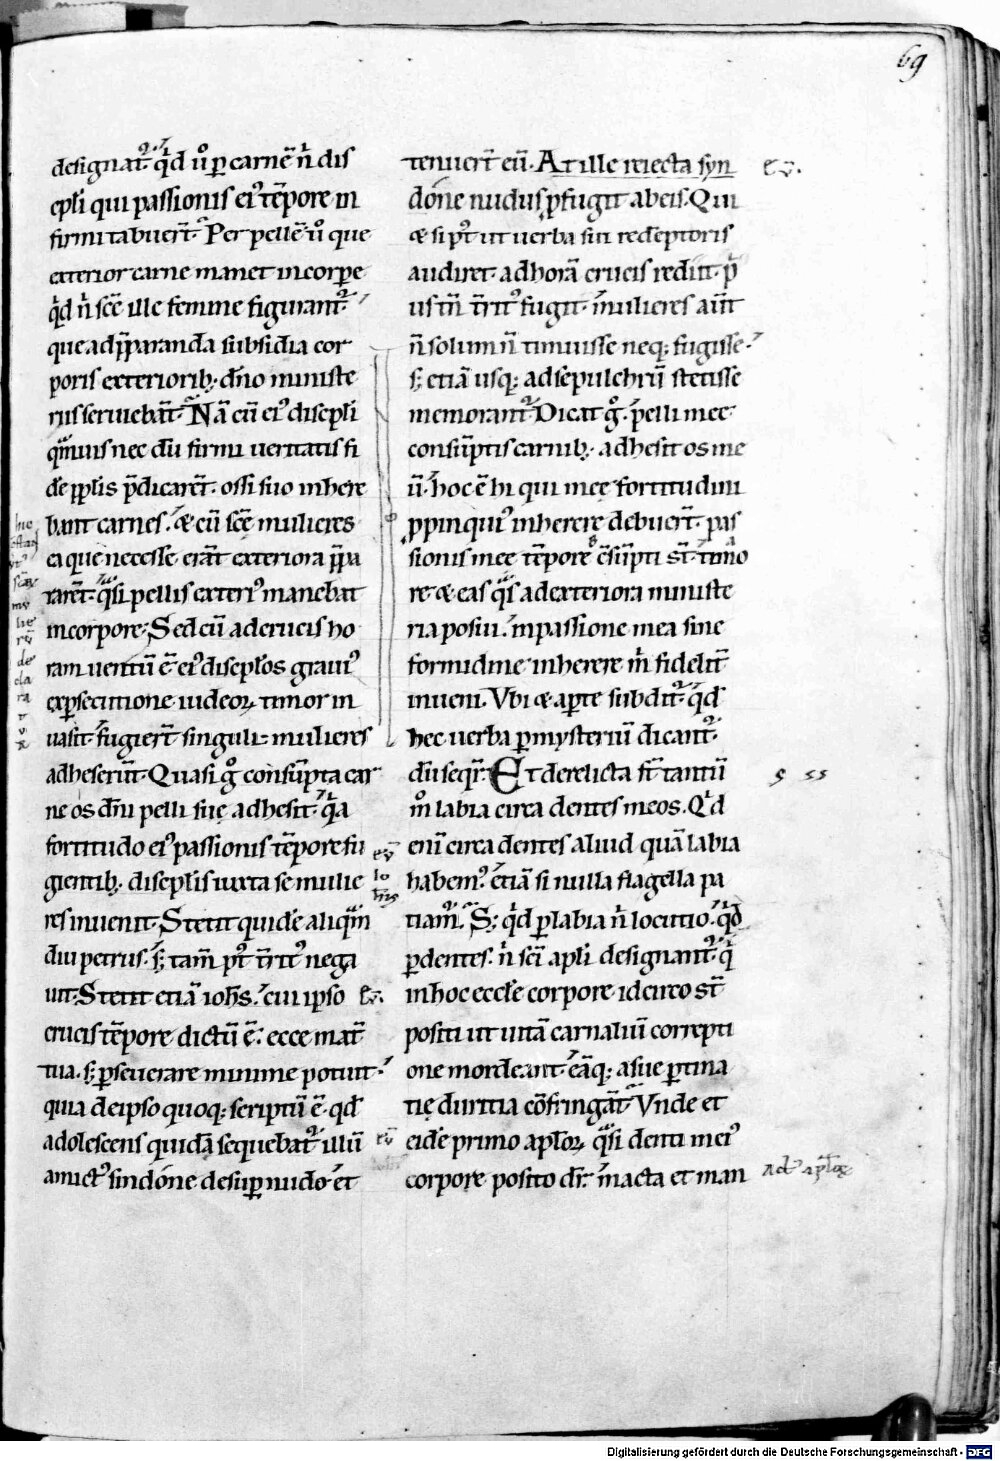 69
designat̃. q̇d ũo ꝑ carnẽ ñ dis
cpl̃i qui passionis ei᷒ tẽpore in
firmitabuer̃t. Per pellẽ ũo que
exterior carne manet in corpore
q̇d ñ sc̃e ille femine figurant̃.
que ad p̃paranda subsidia cor
poris exteriorib; dño ministe
riis seruiebãt. Nã cũ ei᷒ discipl̃i
q̃muis nec dũ firmi ueritatis fi
dẽ ppl̃is p̃dicarẽt. ossi suo inhere
bant carnes. & cũ sc̃e mulieres
ea que necesse erãt exteriora p̃pa
rarẽt. q̃si pellis exteri᷒ manebat
in corpore. Sed cũ ad crucis ho
ram uentũ ẽ. ei᷒ discipl̃os graui᷒
ex ꝑsecutione iudeoꝝ timor in
uasit. fugier̃t singuli. mulieres
adheserũt. Quasi g̊ consũpta car
ne os dñi pelli sue adhesit. q̇a
fortitudo ei᷒ passionis tẽpore fu
gientib; discipl̃is iuxta se mulie
res inuenit. Stetit quidẽ aliq̃m
diu petrus. s; tam̃ p᷒t t̃rit᷒ nega
uit. Stetit etiã ioh̃s. cui ipso
crucis tẽpore dictũ ẽ. ecce mat̃
tua. s; ꝑseuerare minime potuit.
quia de ipso quoq; scriptũ ẽ. qd̃
adolescens quidã sequebat̃ illũ
amict᷒ sindone desuꝑ nudo. et
tenuer̃t eũ. At ille reiecta syn
done nudus ꝓfugit ab eis. Qui
& si p᷒t ut uerba sui redẽptoris
audiret. ad horã crucis rediit. p̃
us tñ t̃rit᷒ fugit. mulieres aũt
ñ solum ñ timuisse neq; fugisse.
s; etiã usq; ad sepulchrũ stetisse
memorant̃. Dicat g̊. pelli mee
consũptis carnib; adhesit os me
ũ. hoc ẽ hi qui mee fortitudini
ꝓpinqui᷒ inherere debuer̃t. pas
sionis mee tẽpore c̃sũpti st̃ timo
re. & eas q̃s ad exteriora ministe
ria posui. in passione mea sine
formidine inherere m̃ fidelit̃
inueni. Vbi & aꝑte subdit̃. q̇d
hec uerba ꝑ mysteriũ dicant̃.
dũ seqr̃. Et derelicta st̃ tantũ
m̊ labia circa dentes meos. Q̇d
eni circa dentes aliud quã labia
habem᷒. etiã si nulla flagella pa
tiam̃. S; q̇d ꝑ labia ñ locutio. q̇d
ꝑ dentes. ñ sc̃i apl̃i designant̃. q̇
in hoc eccl̃e corpore idcirco st̃
positi ut uitã carnaliũ correpti
one mordeant. eãq; a sue ꝑtina
tie duritia cõfringãt. Vnde et
eidẽ primo apl̃oꝝ q̃si denti in ei᷒
corpore posito dr̃. macta et man
Digitalisierung gefördert durch die Deutsche Forschungsgemeinschaft - DFG